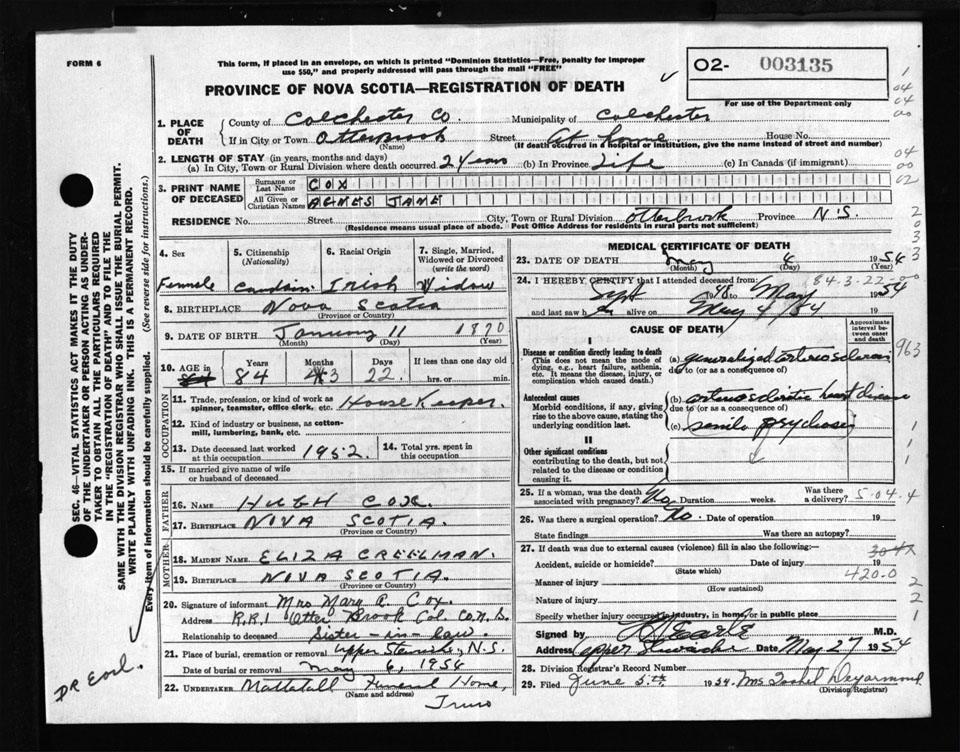 FORM 6
This form, if placed in an envelope, on which is printed "Dominion Statistics—Free, penalty for improper
use $50," and properly addressed will pass through the mail "FREE"
02- 003135
For use of the Department only
PROVINCE OF NOVA SCOTIA—REGISTRATION OF DEATH
1. PLACE OF DEATH
County of Colchester Co. Municipality of Colchester
If in City or Town Otterbrook (Name) Street At home House No.
(If death occurred in a hospital or institution, give the name instead of street and number)
2. LENGTH OF STAY (in years, months and days)
(a) In City, Town or Rural Division where death occurred 2 years (b) In Province Life (c) In Canada (if immigrant)
3. PRINT NAME OF DECEASED
Surname or Last Name COX
All Given or Christian Names AGNES JANE
RESIDENCE No. Street City, Town or Rural Division Otterbrook Province N.S.
(Residence means usual place of abode. Post Office Address for residents in rural parts not sufficient)
4. Sex Female
5. Citizenship (Nationality)
6. Racial Origin Irish
7. Single, Married, Widowed or Divorced (write the word) Widow
8. BIRTHPLACE Nova Scotia
(Province or Country)
9. DATE OF BIRTH January 11 1870
(Month) (Day) (Year)
10. AGE in
Years 84 Months 3 Days 22
If less than one day old
hrs. or min.
OCCUPATION
11. Trade, profession, or kind of work as spinner, teamster, office clerk, etc. House Keeper.
12. Kind of industry or business, as cotton-mill, lumbering, bank, etc.
13. Date deceased last worked at this occupation 1952.
14. Total yrs. spent in this occupation
15. If married give name of wife or husband of deceased
FATHER
16. NAME HUGH COX
17. BIRTHPLACE NOVA SCOTIA.
(Province or Country)
MOTHER
18. MAIDEN NAME. ELIZA CREELMAN.
19. BIRTHPLACE NOVA SCOTIA.
(Province or Country)
20. Signature of informant Mrs Mary R. Cox.
Address R.R.1 Otter Brook Col. Co. N.S.
Relationship to deceased Sister-in-law.
21. Place of burial, cremation or removal Upper N.S.
Date of burial or removal May 6, 1954
22. UNDERTAKER Mattatall Funeral Home,
(Name and address)
Truro
MEDICAL CERTIFICATE OF DEATH
23. DATE OF DEATH May 4 1954
(Month) (Day) (Year)
24. I HEREBY CERTIFY that I attended deceased from:
Sept 1948 to May 1954
and last saw her alive on May 4/54 19
CAUSE OF DEATH
Approximate interval between onset and death
I
Disease or condition directly leading to death
(This does not mean the mode of dying, e.g., heart failure, asthenia, etc. It means the disease, injury, or complication which caused death.)
(a) generalized arteriosclerosis
due to (or as a consequence of)
Antecedent causes
Morbid conditions, if any, giving rise to the above cause, stating the underlying condition last.
(b) arteriosclerotic heart disease
due to (or as a consequence of)
(c) senile psychosis
II
Other significant conditions
contributing to the death, but not related to the disease or condition causing it.
963
25. If a woman, was the death associated with pregnancy? No Duration weeks. Was there a delivery? 5-04.4
26. Was there a surgical operation? No. Date of operation 19
State findings Was there an autopsy?
27. If death was due to external causes (violence) fill in also the following:—
Accident, suicide or homicide? Date of injury 19
(State which)
420.0
Manner of injury
(How sustained)
Nature of injury
Specify whether injury occurred in industry, in home or in public place
Signed by M.D.
Address Upper Date May 27 1954
28. Division Registrar's Record Number
29. Filed June 5th 1954
(Division Registrar)
SEC. 46—VITAL STATISTICS ACT MAKES IT THE DUTY
OF THE UNDERTAKER OR PERSON ACTING AS UNDERTAKER
TO OBTAIN ALL THE PARTICULARS REQUIRED
IN THE "REGISTRATION OF DEATH" AND TO FILE THE
SAME WITH THE DIVISION REGISTRAR WHO SHALL ISSUE THE BURIAL PERMIT.
WRITE PLAINLY WITH UNFADING INK. THIS IS A PERMANENT RECORD.
Every item of information should be carefully supplied. (See reverse side for instructions.)
DR Earl.